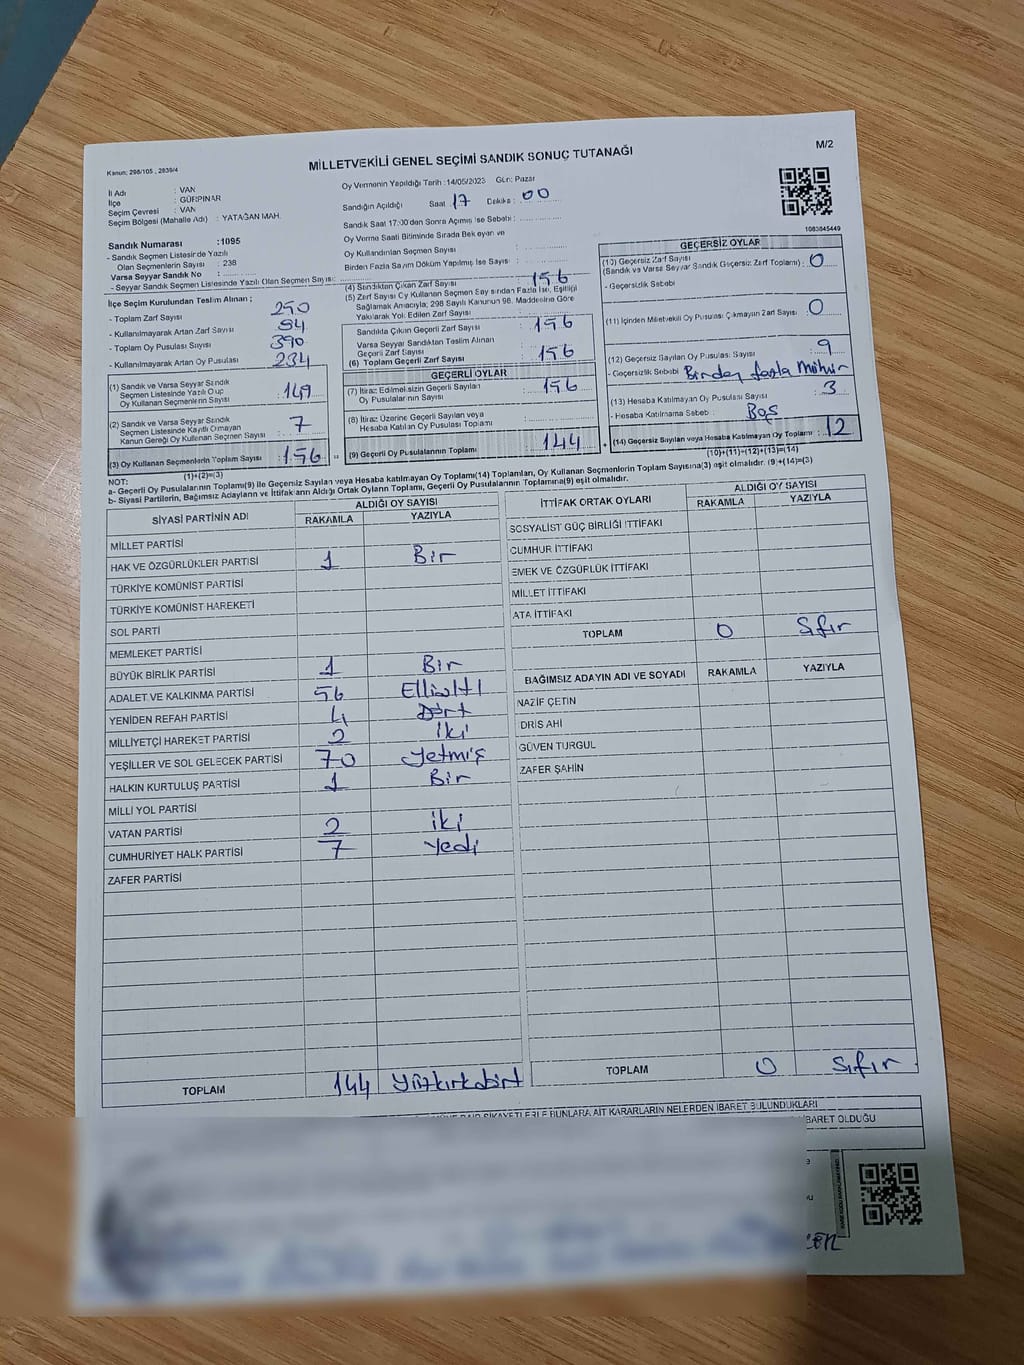 Kanun: 298/105 , 2839/4
MİLLETVEKİLİ GENEL SEÇİMİ SANDIK SONUÇ TUTANAĞI
M/2
İl Adı : VAN
İlçe : GÜRPINAR
Seçim Çevresi : VAN
Seçim Bölgesi (Mahalle Adı) : YATAĞAN MAH.
Oy Vermenin Yapıldığı Tarih :14/05/2023 Gün: Pazar
Sandığın Açıldığı Saat 17 Dakika : 00
Sandık Saat 17:00'den Sonra Açılmış İse Sebebi :
Oy Verme Saati Bitiminde Sırada Bekleyen ve
Oy Kullandırılan Seçmen Sayısı :
Birden Fazla Sayım Döküm Yapılmış İse Sayısı :
1083845449
Sandık Numarası :1095
- Sandık Seçmen Listesinde Yazılı
Olan Seçmenlerin Sayısı : 238
Varsa Seyyar Sandık No :
- Seyyar Sandık Seçmen Listesinde Yazılı Olan Seçmen Sayısı:
İlçe Seçim Kurulundan Teslim Alınan ;
- Toplam Zarf Sayısı : 250
- Kullanılmayarak Artan Zarf Sayısı : 94
- Toplam Oy Pusulası Sayısı : 390
- Kullanılmayarak Artan Oy Pusulası : 234
(1) Sandık ve Varsa Seyyar Sandık
Seçmen Listesinde Yazılı Olup
Oy Kullanan Seçmenlerin Sayısı : 149
(2) Sandık ve Varsa Seyyar Sandık
Seçmen Listesinde Kayıtlı Olmayan
Kanun Gereği Oy Kullanan Seçmen Sayısı : 7
(3) Oy Kullanan Seçmenlerin Toplam Sayısı : 156
(1)+(2)=(3)
(4) Sandıktan Çıkan Zarf Sayısı : 156
(5) Zarf Sayısı Oy Kullanan Seçmen Sayısından Fazla İse, Eşitliği
Sağlamak Amacıyla, 298 Sayılı Kanunun 98. Maddesine Göre
Yakılarak Yok Edilen Zarf Sayısı :
Sandıkta Çıkan Geçerli Zarf Sayısı : 156
Varsa Seyyar Sandıktan Teslim Alınan
Geçerli Zarf Sayısı :
(6) Toplam Geçerli Zarf Sayısı : 156
GEÇERLİ OYLAR
(7) İtiraz Edilmeksizin Geçerli Sayılan
Oy Pusulalarının Sayısı : 156
(8) İtiraz Üzerine Geçerli Sayılan veya
Hesaba Katılan Oy Pusulası Toplamı :
(9) Geçerli Oy Pusulalarının Toplamı : 144
GEÇERSİZ OYLAR
(10) Geçersiz Zarf Sayısı
(Sandık ve Varsa Seyyar Sandık Geçersiz Zarf Toplamı) : 0
- Geçersizlik Sebebi
(11) İçinden Milletvekili Oy Pusulası Çıkmayan Zarf Sayısı : 0
(12) Geçersiz Sayılan Oy Pusulası Sayısı : 9
- Geçersizlik Sebebi Birden fazla Mühür
(13) Hesaba Katılmayan Oy Pusulası Sayısı : 3
- Hesaba Katılmama Sebebi : Boş
(14) Geçersiz Sayılan veya Hesaba Katılmayan Oy Toplamı : 12
(10)+(11)+(12)+(13)=(14)
NOT:
a- Geçerli Oy Pusulalarının Toplamı(9) ile Geçersiz Sayılan veya Hesaba katılmayan Oy Toplamı(14) Toplamları, Oy Kullanan Seçmenlerin Toplam Sayısına(3) eşit olmalıdır. (9)+(14)=(3)
b- Siyasi Partilerin, Bağımsız Adayların ve İttifakların Aldığı Ortak Oyların Toplamı, Geçerli Oy Pusulalarının Toplamına(9) eşit olmalıdır.
SİYASİ PARTİNİN ADI ALDIĞI OY SAYISI
RAKAMLA YAZIYLA
MİLLET PARTİSİ
HAK VE ÖZGÜRLÜKLER PARTİSİ 1 Bir
TÜRKİYE KOMÜNİST PARTİSİ
TÜRKİYE KOMÜNİST HAREKETİ
SOL PARTİ
MEMLEKET PARTİSİ
BÜYÜK BİRLİK PARTİSİ 1 Bir
ADALET VE KALKINMA PARTİSİ 56 Ellialtı
YENİDEN REFAH PARTİSİ 4 Dört
MİLLİYETÇİ HAREKET PARTİSİ 2 İki
YEŞİLLER VE SOL GELECEK PARTİSİ 70 Yetmiş
HALKIN KURTULUŞ PARTİSİ 1 Bir
MİLLİ YOL PARTİSİ
VATAN PARTİSİ 2 iki
CUMHURİYET HALK PARTİSİ 7 Yedi
ZAFER PARTİSİ
TOPLAM 144 Yüzkırkdört
İTTİFAK ORTAK OYLARI ALDIĞI OY SAYISI
RAKAMLA YAZIYLA
SOSYALİST GÜÇ BİRLİĞİ İTTİFAKI
CUMHUR İTTİFAKI
EMEK VE ÖZGÜRLÜK İTTİFAKI
MİLLET İTTİFAKI
ATA İTTİFAKI
TOPLAM 0 Sıfır
BAĞIMSIZ ADAYIN ADI VE SOYADI RAKAMLA YAZIYLA
NAZİF ÇETİN
İDRİS AHİ
GÜVEN TURGUL
ZAFER ŞAHİN
TOPLAM 0 Sıfır
ŞİKAYETLERLE BUNLARA AİT KARARLARIN NELERDEN İBARET BULUNDUKLARI
İBARET OLDUĞU